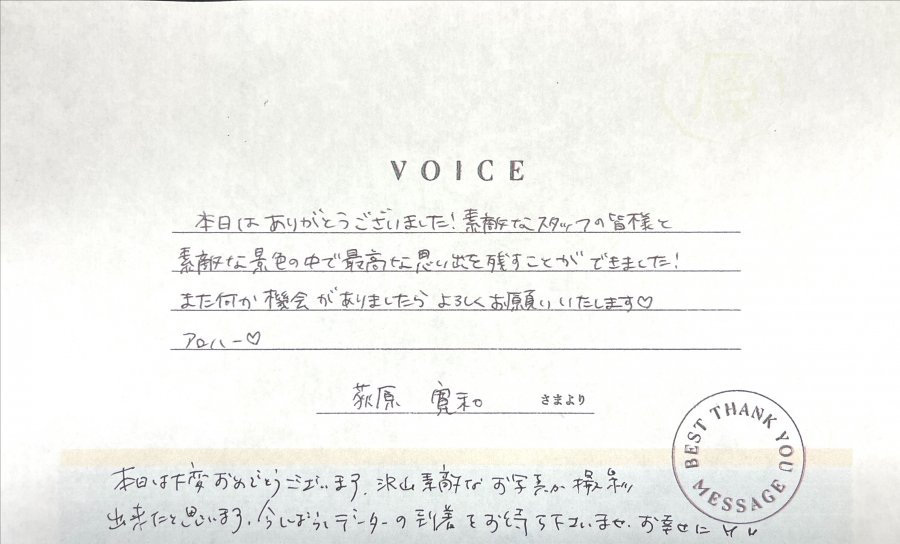 VOICE
本日はありがとうございました!素敵なスタッフの皆様と
素敵な景色の中で最高な思い出を残すことができました!
また何か機会がありましたらよろしくお願いいたします♡
アロハー♡
荻原 寛和 さまより
BEST THANK YOU MESSAGE
本日は大変おめでとうございます。沢山素敵なお写真が撮影
出来たと思います。今しばらくデーターの到着をお待ち下さいませ。お幸せに